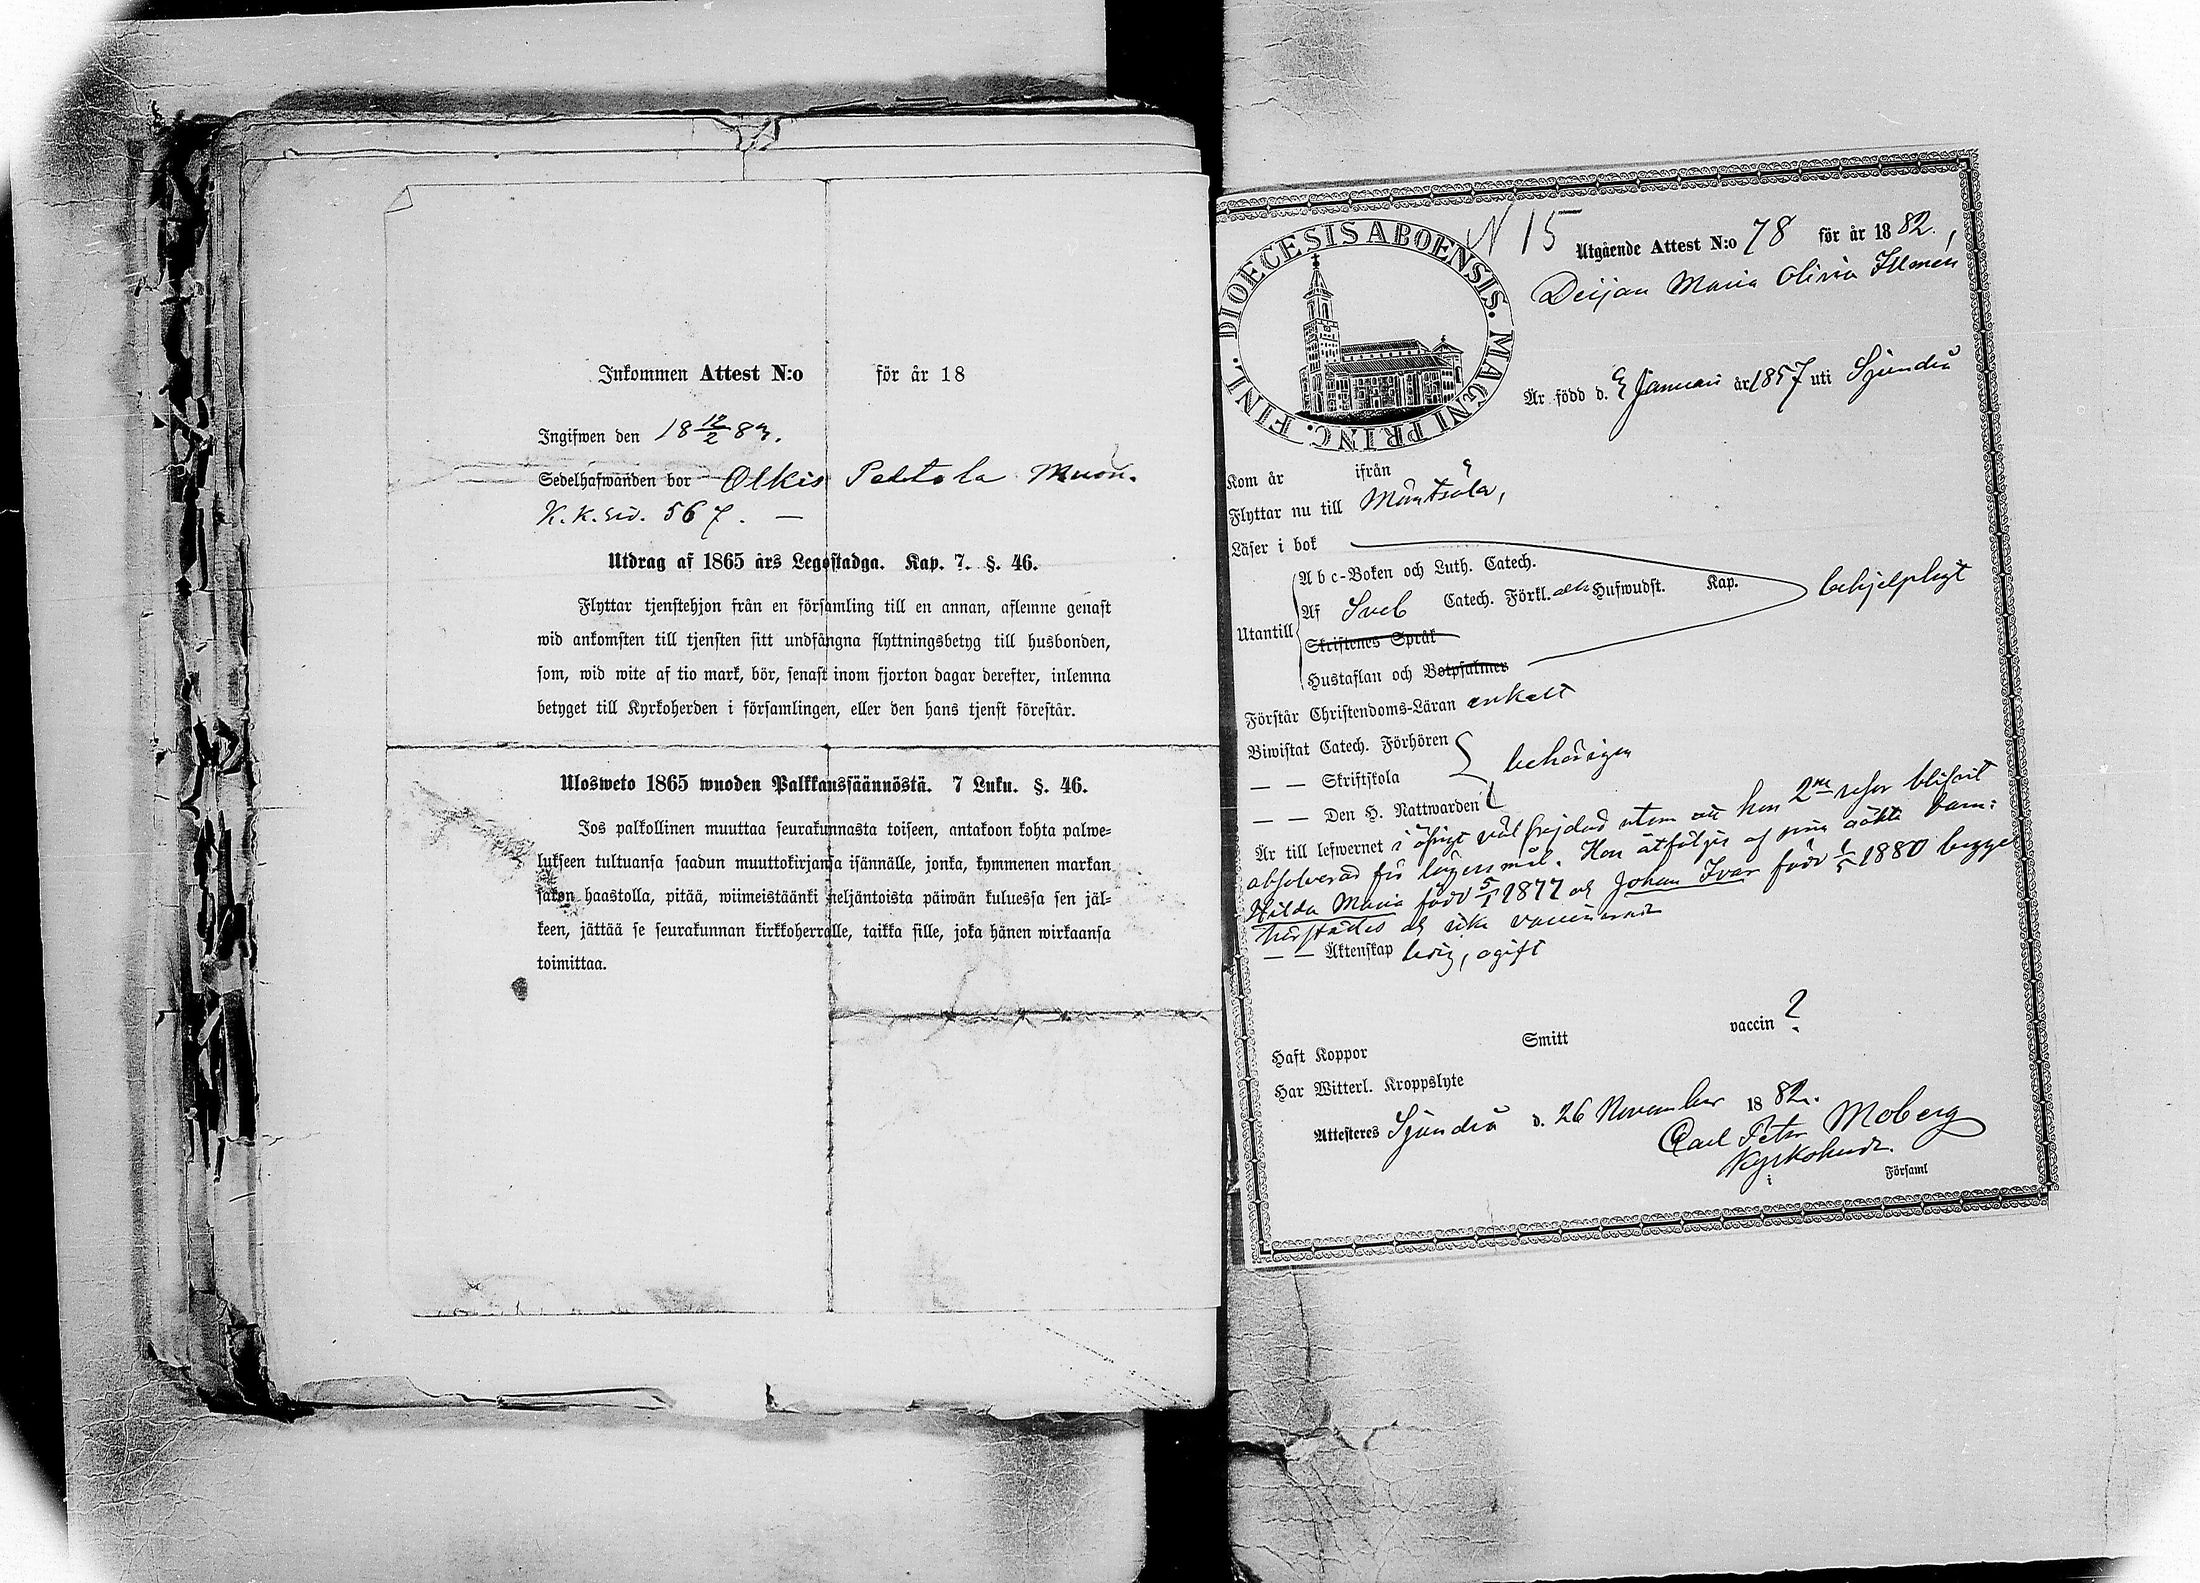 Inkommen Attest N:o för år 18
Ingifwen den 18 12/2 83.
Sedelhafwanden bor Olkis Pehtola Muon.
K.k.sid. 567. —
Utdrag af 1865 års Legostadga. Kap. 7. §. 46.
Flyttar tjenstehjon från en församling till en annan, aflemne genast
wid ankomsten till tjensten sitt undfångna flyttningsbetyg till husbonden,
som, wid wite af tio mark, bör, senast inom fjorton dagar derefter, inlemna
betyget till Kyrkoherden i församlingen, eller den hans tjenst förestår.
Ulosweto 1865 wuoden Palkkaussäännöstä. 7 Luku. §. 46.
Jos palkollinen muuttaa seurakunnasta toiseen, antakoon kohta palwe=
lukseen tultuansa saadun muuttokirjansa isännälle, jonka, kymmenen markan
sakon haastolla, pitää, wiimeistäänki neljäntoista päiwän kuluessa sen jäl=
keen, jättää se seurakunnan kirkkoherralle, taikka sille, joka hänen wirkaansa
toimittaa.
DIOECESIS ABOENSIS. MAGNI PRINC. FINL.
N 15 Utgående Attest N:o 78 för år 1882.,
Deijan Maria Olivia Illmén
Är född d. 9 Januari år 1857 uti Sjundeå
Kom år ifrån
Flyttar nu till Mäntsälä,
Läser i bok
Utantill
Abc-Boken och Luth. Catech.
Af Sveb Catech. Förkl. och Hufwudst. Kap. behjelpligt
Skriftenes Språk
Hustaflan och Botpsalmer
Förstår Christendoms-Läran enkelt
Biwistat Catech. Förhören
— — Skriftskola behörigen
— — Den H. Nattwarden
Är till lefwernet i öfrigt välfrejdad utom att hon 2ne resor blifvit
absolverad för lägersmål. Hon åtföljes af sina oäkta barn:
Hilda Maria född 5/1 1877 och Johan Ivar född 1/5 1880 begge
härstädes och icke vaccinerade
— — Äktenskap ledig, ogift
Haft Koppor Smitt vaccin ?
Har Witterl. Kroppslyte
Attesteres Sjundeå d. 26 November 1882.
Carl Petr Moberg
Kyrkoherde
i Församl